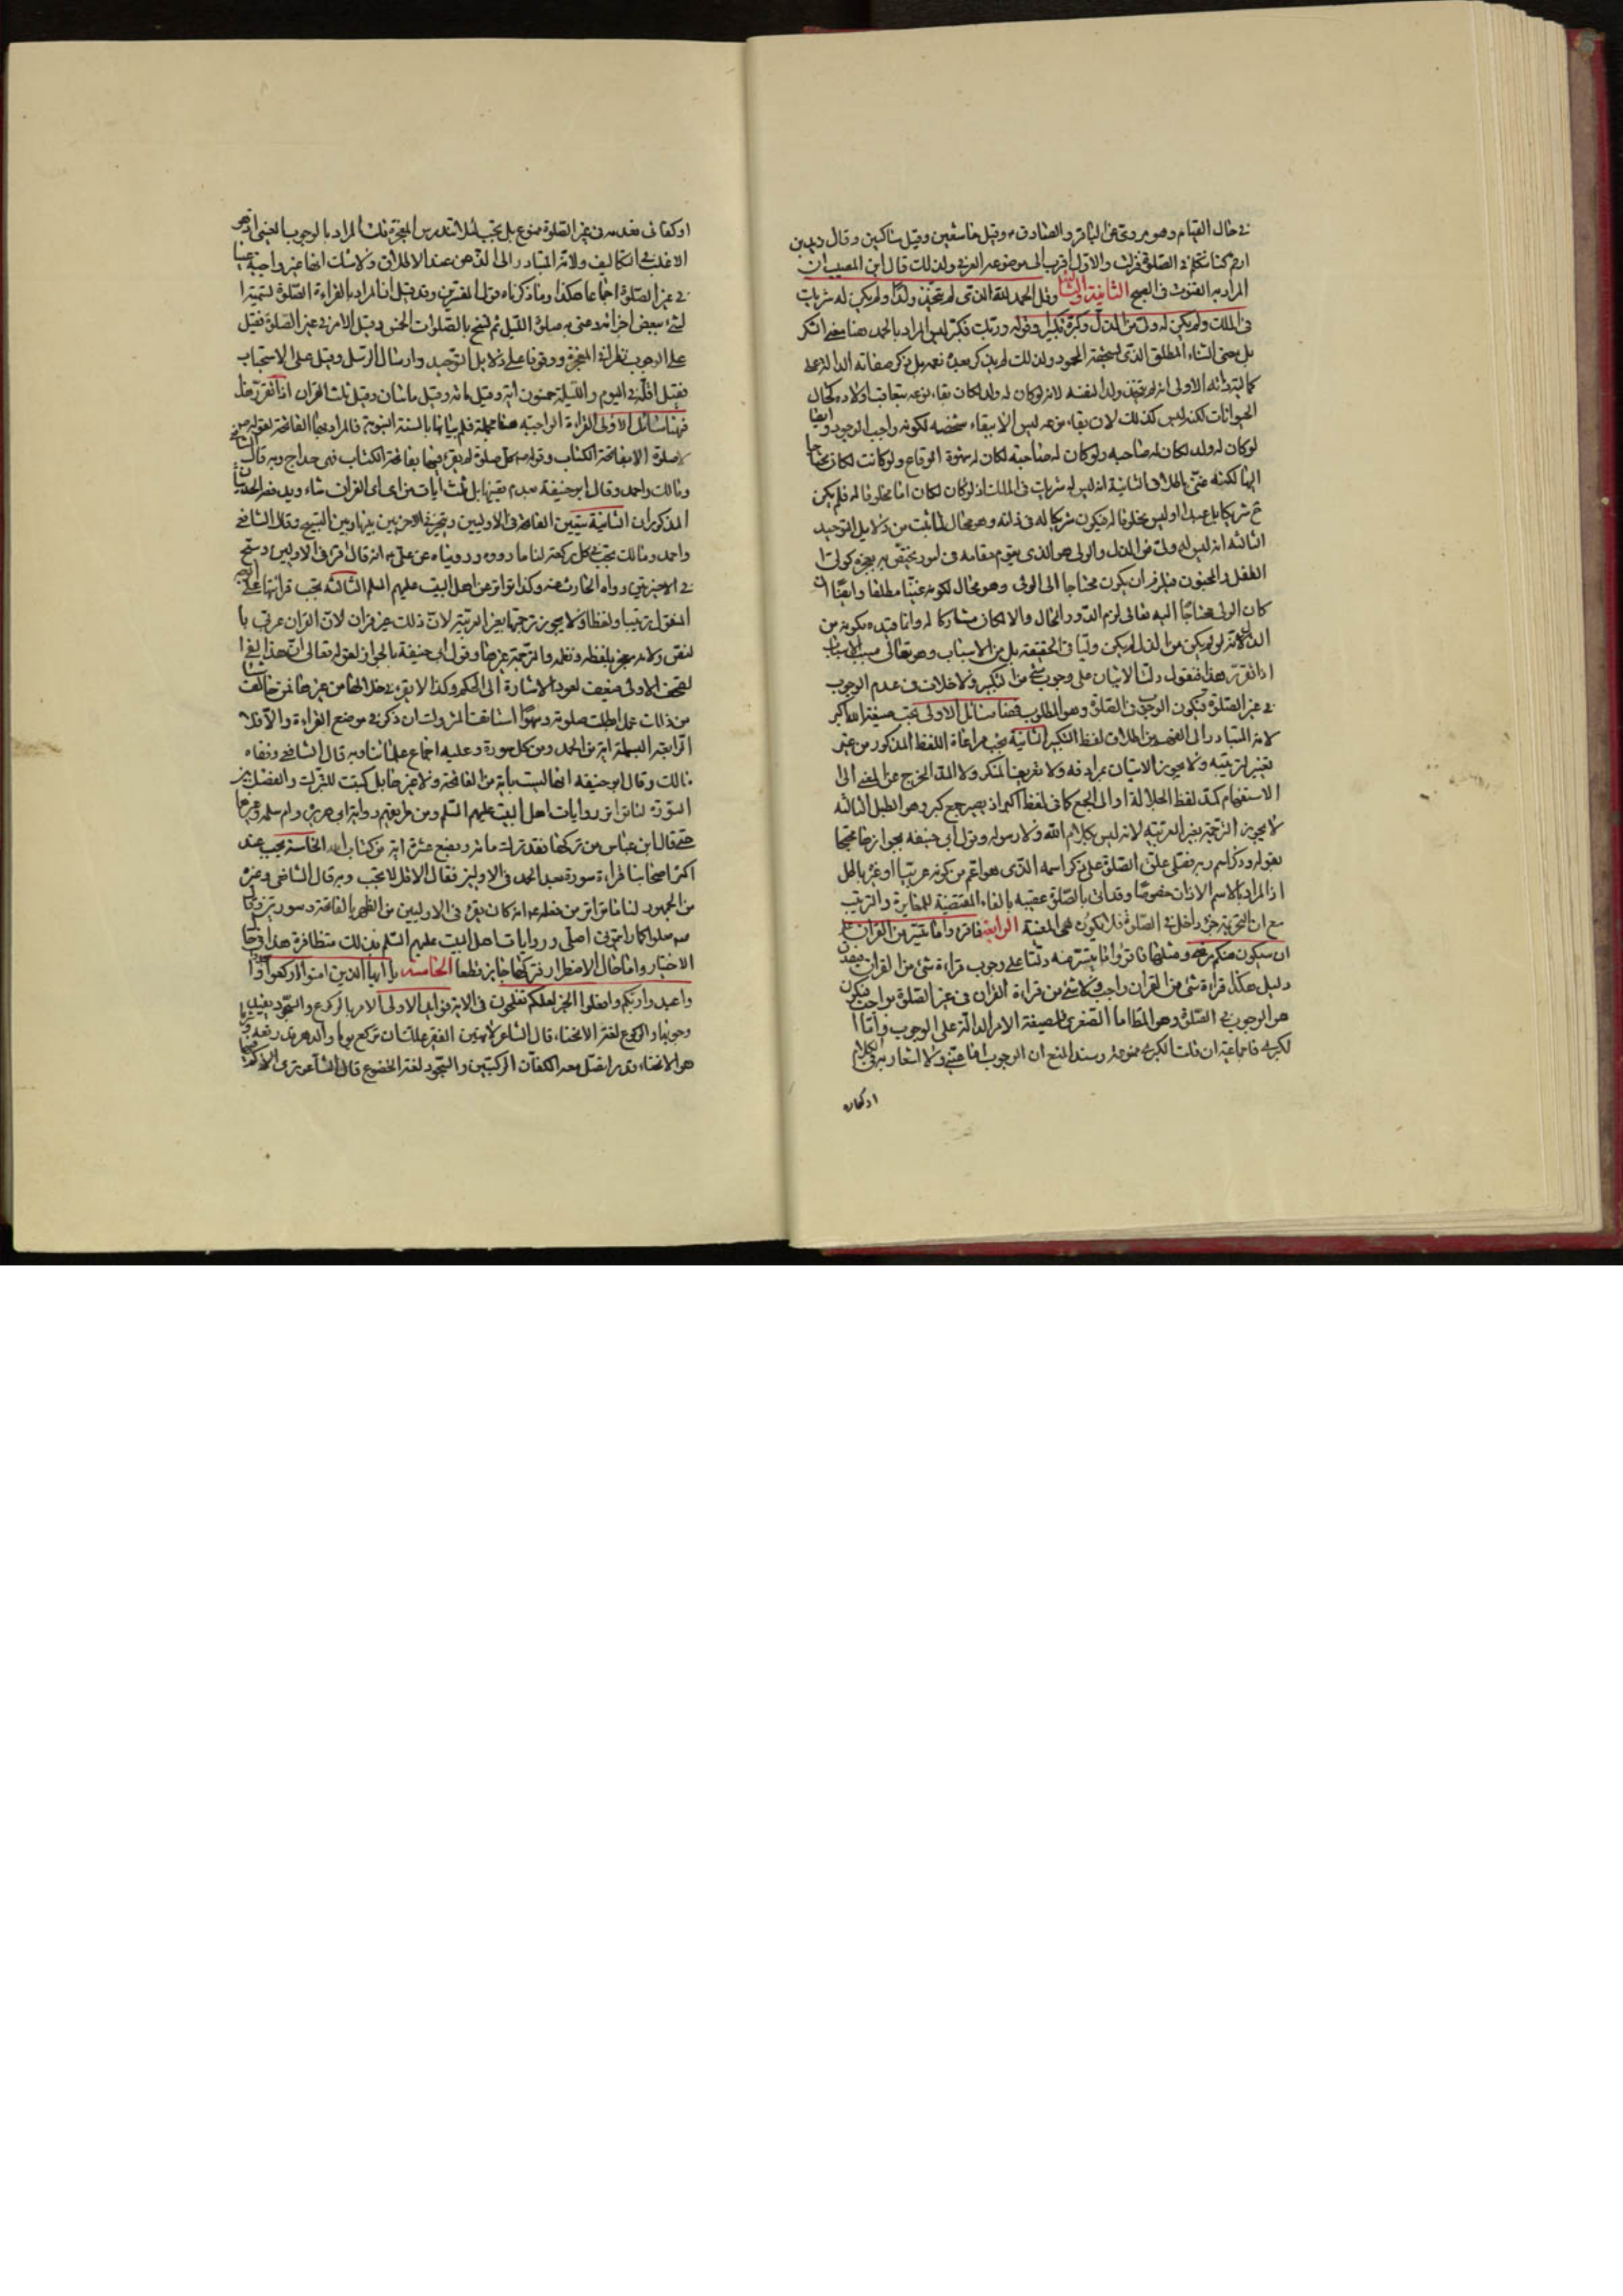 في حال القيام وهو مروي عن الباقر والصادق ع وقيل خاشعين وقيل ساكتين وقال زيد بن
ارقم كنا نتكلم في الصلوة فنزلت والاول اقرب الى موضوعه العرفي ولذلك قال ابن المسيب ان
المراد به القنوت في الصبح الثانية والثالثة وقل الحمد لله الذي لم يتخذ ولدا ولم يكن له شريك
في الملك ولم يكن له ولي من الذل وكبره تكبيرا وقوله وربك فكبر ليس المراد بالحمد هنا معنى الشكر
بل معنى الثناء المطلق الذي يستحقه المحمود ولذلك لم يذكر بعده نعمه بل ذكر صفاته الدالة على
كماليته ذاته الاولى انه لم يتخذ ولدا لنفسه لانه لو كان له ولد لكان بقاء نوعه بتعاقب اولاده كحال
الحيوانات لكنه ليس كذلك لان بقاء نوعه ليس الا ببقاء شخصه لكونه واجب الوجود وايضا
لو كان له ولد لكان له صاحبة ولو كان له صاحبة لكان له شهوة الوقاع ولو كانت لكان محتاجا
اليها لكنه غني بالاطلاق الثانية انه ليس له شريك في الملك اذ لو كان لكان اما مخلوقا له فلم يكن
ح شريكا بل عبدا او ليس مخلوقا له فيكون شريكا له في ذاته وهو محال لما ثبت من دلايل التوحيد
الثالثة انه ليس له ولي من الذل والولي هو الذي يقوم مقامه في امور تختص به بعجزه كولي
الطفل والمجنون فيلزم ان يكون محتاجا الى الولي وهو محال لكونه غنيا مطلقا وايضا ان
كان الولي محتاجا اليه تعالى لزم الدور المحال والا لكان مشاركا له وانما قيده بكونه من
الذل لانه لو لم يكن من الذل لم يكن وليا في الحقيقة بل من الاسباب وهو تعالى مسبب الاسباب
اذا تقرر هذا فنقول دلت الايتان على وجوب شيء من التكبير ولا خلاف في عدم الوجوب
في غير الصلوة فيكون الوجوب في الصلوة وهو المطلوب فهنا مسائل الاولى تجب صيغة الله اكبر
لانه المتبادر الى الفهم من اطلاق لفظ التكبير الثانية يجب مراعاة اللفظ المذكور من غير
تغيير لترتيبه ولا يجوز الاتيان بمرادفه ولا تعريف المنكر ولا المد المخرج عن المعنى الى
الاستفهام كمد لفظ الجلالة او الى الجمع كما في لفظ اكبر اذ يصير جمع كبر وهو الطبل الثالثة
لا يجوز الترجمة بغير العربية لانه ليس بكلام الله ولا رسوله وقول ابي حنيفة بجوازها محتجا
بقوله وذكر اسم ربه فصلى علق الصلوة على ذكر اسمه الذي هو اعم من كونه عربيا او غيره باطل
اذ المراد بالاسم الاذان خصوصا وقد اتى بالصلوة عقيبه بالفاء المقتضية للمغايرة والترتيب
مع ان التحريمة جزء داخل في الصلوة فلا يكون هي المعنية الرابعة فاقرؤا ما تيسر من القران علم
ان سيكون منكم مرضى ومثلها فاقرؤا ما تيسر منه دلتا على وجوب قراءة شيء من القران فيصدق
دليل هكذا قراءة شيء من القران واجب ولا شيء من قراءة القران في غير الصلوة بواجب فيكون
هو الوجوب في الصلوة وهو المط اما الصغرى فلصيغة الامر الدالة على الوجوب واما ا
لكبرى فاجماعية ان قلت الكبرى ممنوعة وسند المنع ان الوجوب اما عيني ولا اشعار به في الكلام
او كفائي
او كفائي فعدمه في غير الصلوة ممنوع بل يجب لئلا تندرس المعجزة قلت المراد بالوجوب العيني اذ هو
الاغلب في التكاليف ولانه المتبادر الى الذهن عند الاطلاق ولا شك انها غير واجبة عينا
في غير الصلوة اجماعا هكذا وما ذكرناه قول المفسرين وقد قيل ان المراد بالقراءة الصلوة تسمية ا
لشيء ببعض اجزائه وعنى به صلوة الليل ثم نسخ بالصلوات الخمس وقيل الامر في غير الصلوة فقيل
على الوجوب نظرا في المعجزة ووقوفا على دلايل التوحيد وارسال الرسل وقيل على الاستحباب
فقيل اقله في اليوم والليلة خمسون اية وقيل مائة وقيل مائتان وقيل ثلث القران اذا تقرر هذا
فهنا مسائل الاولى القراءة الواجبة هنا مجملة فلم بيانها بالسنة النبوية فالمراد بها الفاتحة لقوله ص
لا صلوة الا بفاتحة الكتاب وقوله ص كل صلوة لم يقرء فيها بفاتحة الكتاب فهي خداج وبه قال الشافعي
ومالك واحمد وقال ابو حنيفة بعدم تعينها بل ثلث ايات من اي القران شاء ويدفعه الحديثان
المذكوران الثانية يتعين الفاتحة في الاوليين ويتخير في الاخريين بينها وبين التسبيح وقال الشافعي
واحمد ومالك تجب في كل ركعة لنا ما رووه ورويناه عن علي ع انه قال اقرء في الاوليين وسبح
في الاخيرتين رواه الحارث عنه وكذا تواتر عن اهل البيت عليهم السلم الثالثة يجب قرائتها على النهج
المنقول ترتيبا ولفظا ولا يجوز ترجمتها بغير العربية لان ذلك غير قران لان القران عربي با
لنص ولانه معجز بلفظه ونظمه والترجمة غيرهما وقول ابي حنيفة بالجواز لقوله تعالى ان هذا لفي ا
لصحف الاولى ضعيف لعود الاشارة الى الحكم وكذا لا يقرء في خلالها من غيرها فمن خالف شيئا
من ذلك عمدا بطلت صلوته وسهوا استانف ان ذكر في موضع القراءة والا فلا
الرابعة البسملة اية من الحمد ومن كل سورة وعليه اجماع علمائنا وبه قال الشافعي ونفاه
مالك وقال ابو حنيفة انها ليست باية من الفاتحة ولا غيرها بل كتبت للتبرك والفصل بين
السور لنا تواتر روايات اهل البيت عليهم السلم ومن طريقهم رواية ابي هريرة وام سلمة وغيرهما
حتى قال ابن عباس من تركها فقد ترك مائة وبضع عشرة اية من كتاب الله الخامسة يجب عند
اكثر اصحابنا قراءة سورة بعد الحمد في الاوليين فقال الاقل لا يجب وبه قال الشافعي وغيره
من الجمهور لنا ما تواتر من فعله ص انه كان يقرء في الاوليين من الظهر بالفاتحة وسورتين وقال
ص صلوا كما رايتموني اصلي وروايات اهل البيت عليهم السلم بذلك متظافرة هذا في حال
الاختيار واما حال الاضطرار فتركها جايز قطعا الخامسة يا ايها الذين امنوا اركعوا واسجدوا
واعبدوا ربكم وافعلوا الخير لعلكم تفلحون في الاية فوايد الاولى الامر بالركوع والسجود يفيد
وجوبهما والركوع لغة الانحناء قال الشاعر لا تهين الفقير علك ان تركع يوما والدهر قد رفعه
هو الانحناء بقدر ما تصل معه الكفان الركبتين والسجود لغة الخضوع قال الشاعر ترى الاكم فيها